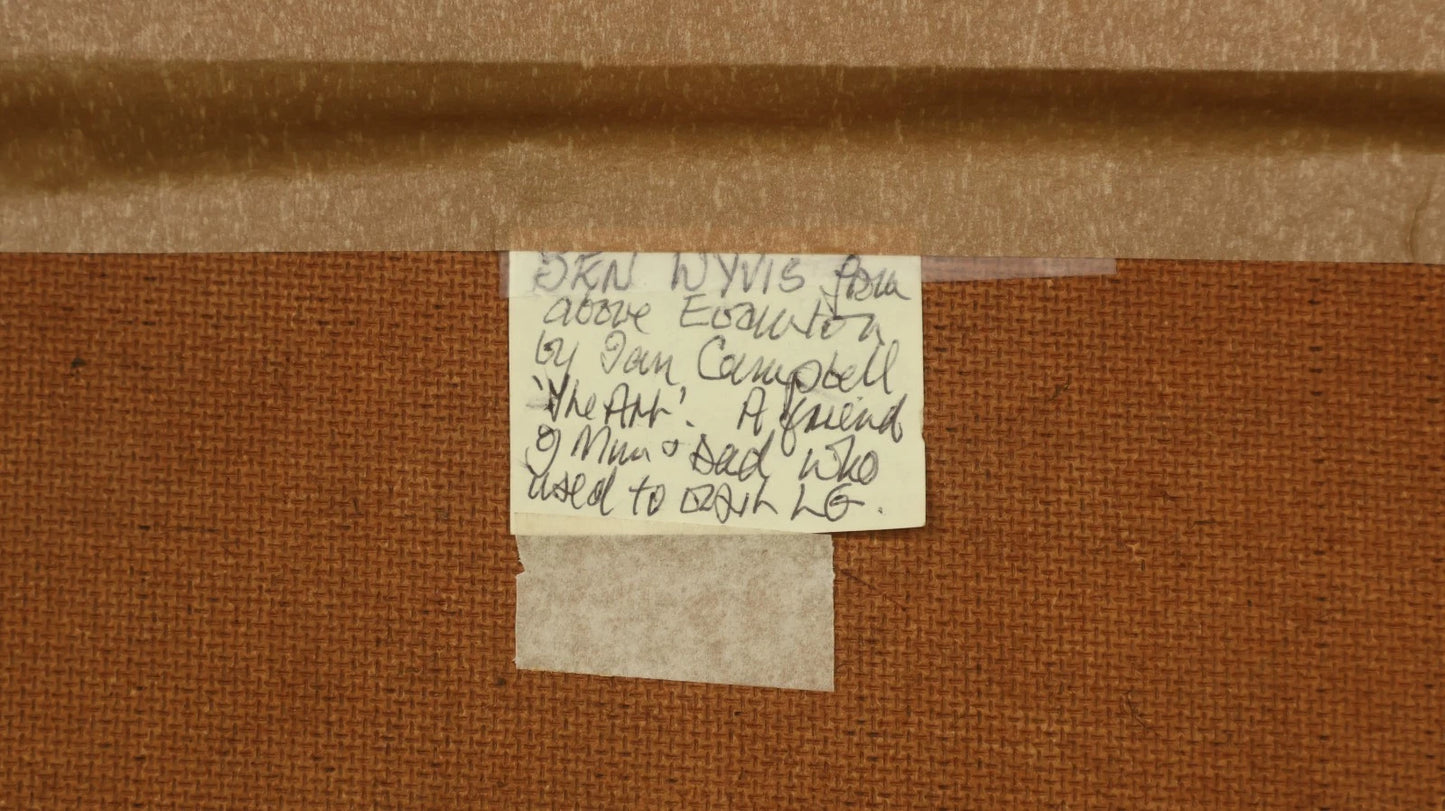 BEN WYVIS from
above Evanton
by Ian Campbell
'The Art'. A friend
of Mum & Dad who
used to LG.